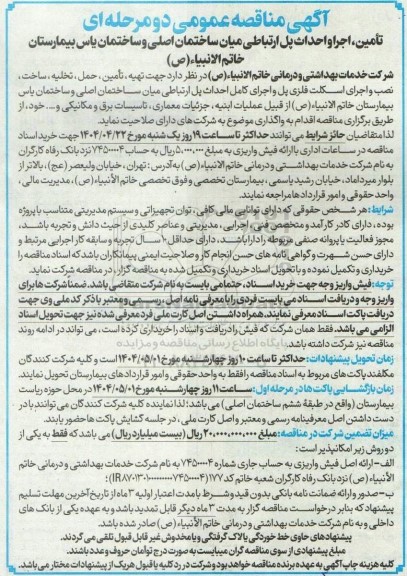 آگهی مناقصه عمومی دو مرحله ای
تأمین، اجرا و احداث پل ارتباطی میان ساختمان اصلی و ساختمان یاس بیمارستان
خاتم الانبیاء(ص)
شرکت خدمات بهداشتی و درمانی خاتم الانبیاء(ص) در نظر دارد جهت تهیه، تأمین، حمل، تخلیه، ساخت،
نصب و اجرای اسکلت فلزی پل و اجرای کامل احداث پل ارتباطی میان ساختمان اصلی و ساختمان یاس
بیمارستان خاتم الانبیاء(ص) از قبیل عملیات ابنیه، جزئیات معماری، تاسیسات برق و مکانیکی و... خود، از
طریق برگزاری مناقصه اقدام به واگذاری موضوع به شرکت های دارای صلاحیت نماید.
لذا متقاضیان حائز شرایط می توانند حداکثر تا ساعت ۱۹ روز یک شنبه مورخ ۱۴۰۴/۰۴/۲۲ جهت خرید اسناد
مناقصه در ساعات اداری با ارائه فیش واریزی به مبلغ ۵,۰۰۰,۰۰۰ ریال به حساب ۷۴۵۰۰۰۰۴ نزد بانک رفاه کارگران
به نام شرکت خدمات بهداشتی و درمانی خاتم الأنبیاء(ص) به آدرس: تهران، خیابان ولیعصر (عج)، بالاتر از
بلوار میرداماد، خیابان رشید یاسمی، بیمارستان تخصصی و فوق تخصصی خاتم الأنبیاء(ص)، مدیریت مالی،
واحد حقوقی و امور قرارداد ها مراجعه نمایند.
شرایط: هر شخص حقوقی که دارای توانایی مالی کافی، توان تجهیزاتی و سیستم مدیریتی متناسب با پروژه
بوده، دارای کادر کارآمد و متخصص فنی، اجرایی، مدیریتی و عناصر کلیدی از حیث دانش و تجربه باشد،
مجوز فعالیت یا پروانه صنفی مربوطه را دارا باشد، دارای حداقل ۱۰ سال تجربه و سابقه کار اجرایی مرتبط و
دارای حسن شهرت و گواهی نامه های حسن انجام کار و صلاحیت ایمنی پیمانکاران باشد که اسناد مناقصه را
خریداری و تکمیل نموده و با تحویل اسناد خریداری و تکمیل شده به مناقصه گزار، در مناقصه شرکت نماید.
توجه: فیش واریز وجه جهت خرید اسناد، حتمامی بایست به نام شرکت متقاضی باشد. ضمنا شرکت ها برای
واریز وجه و دریافت اسناد می بایست فردی را با معرفی نامه اصل، رسمی و معتبر با ذکر کد ملی وی جهت
دریافت پاکت اسناد معرفی نمایند. همراه داشتن اصل کارت ملی فرد معرفی شده نیز جهت تحویل اسناد
الزامی می باشد. فقط همان شرکت که فیش را دریافت و اسناد را خریداری کرده است، می تواند در ادامه روند
مناقصه نیز شرکت داشته باشد.
زمان تحویل پیشنهادات: حداکثر تا ساعت ۱۰ روز چهارشنبه مورخ ۱۴۰۴/۰۵/۰۱ است و کلیه شرکت کنندگان
مکلفند پاکت های مربوط به اسناد مناقصه را فقط به واحد حقوقی و امور قراردادهای بیمارستان تحویل نمایند.
زمان بازگشایی پاکت ها در مرحله اول: ساعت ۱۱ روز چهارشنبه مورخ ۱۴۰۴/۰۵/۰۱ در محل حوزه ریاست
بیمارستان (واقع در طبقه ششم ساختمان اصلی) می باشد؛ لذا نماینده کلیه شرکت کنندگان می توانند با در
دست داشتن اصل معرفینامه رسمی و معتبر و اصل کارت ملی، در جلسه گشایش پاکت ها حضور یابند.
میزان تضمین شرکت در مناقصه: مبلغ ۲۰,۰۰۰,۰۰۰,۰۰۰ ریال (بیست میلیارد ریال) می باشد که فقط به یکی از
دو روش زیر امکانپذیر است:
الف - ارائه اصل فیش واریزی به حساب جاری شماره ۷۴۵۰۰۰۰۴ به نام شرکت خدمات بهداشتی و درمانی خاتم
الأنبیاء(ص) نزد بانک رفاه کارگران شعبه خاتم کد ۱۱۷۷
ب - صدور و ارائه ضمانت نامه بانکی بدون قید و شرط با مدت اعتبار اولیه ۳ ماه از تاریخ آخرین مهلت تسلیم
پیشنهاد که بنابر درخواست مناقصه گزار به مدت ۳ ماه دیگر قابل تمدید باشد و به عهده یکی از بانک های
داخلی و به نام شرکت خدمات بهداشتی و درمانی خاتم الأنبیاء(ص) صادر شده باشد.
پیشنهادهای حاوی خط خوردگی یا لاک گرفتگی و یا مخدوش غیر قابل قبول تلقی می گردند.
مبلغ پیشنهادی از سوی مناقصه گران میبایست به صورت درج توأمان حروف و عدد باشند.
کلیه هزینه چاپ آگهی به عهده برنده مناقصه خواهد بود و شرکت در رد کلیه یا قبول هر یک از پیشنهادات مختار می باشد.